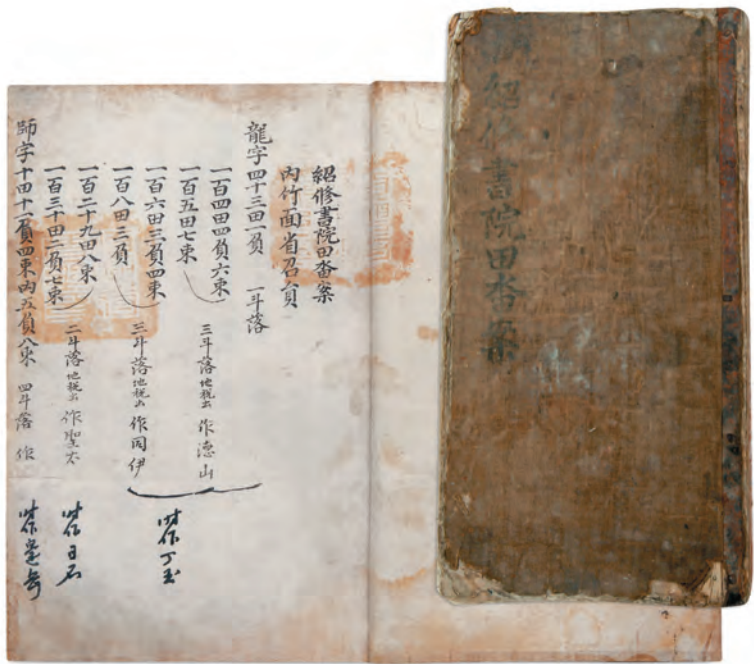 紹修書院田畓案
紹修書院田畓案
內竹面省召員
龍字四十三田一負 一斗落
一百四田四負六束
一百五田七束 三斗落地稅出 作德山
一百六田三負四束
一百八田三負 三斗落地稅出 作同伊
一百二十九田八束
一百三十田二負七束 二斗落地稅出 作聖太
師字十四十一負四束內五負八束 四斗落 作
時作丁玉
時作日石
時作